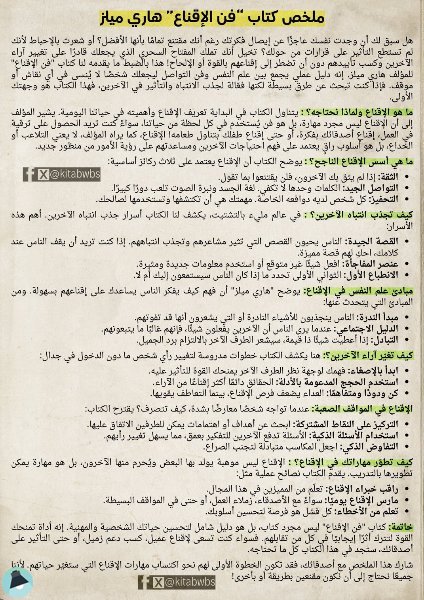 ملخص كتاب "فن الإقناع" هاري ميلز
هل سبق لك أن وجدت نفسك عاجزًا عن إيصال فكرتك رغم أنك مقتنع تمامًا بأنها الأفضل؟ أو شعرت بالإحباط لأنك
لم تستطع التأثير على قرارات من حولك؟ تخيل أنك تملك المفتاح السحري الذي يجعلك قادرًا على تغيير آراء
الآخرين وكسب تأييدهم دون أن تضطر إلى إقناعهم بالقوة أو الإلحاح! هذا بالضبط ما يقدمه لنا كتاب "فن الإقناع"
للمؤلف هاري ميلز. إنه دليل عملي يجمع بين علم النفس وفن التواصل ليجعلك شخصًا لا يُنسى في أي نقاش أو
موقف. فإذا كنت تبحث عن طرق بسيطة لكنها فعالة لجذب الانتباه والتأثير في الآخرين، فهذا الكتاب هو وجهتك
الأولى.
ما هو الإقناع ولماذا نحتاجه؟ : يتناول الكتاب في البداية تعريف الإقناع وأهميته في حياتنا اليومية. يشير المؤلف
إلى أن الإقناع ليس مجرد مهارة، بل هو فن يُستخدم في كل لحظة من حياتنا، سواءً كنت تريد الحصول على ترقية
في العمل، إقناع أصدقائك بفكرة، أو حتى إقناع طفلك بتناول طعامه! الإقناع، كما يراه المؤلف، لا يعني التلاعب أو
الخداع، بل هو أسلوب راقٍ يعتمد على فهم احتياجات الآخرين ومساعدتهم على رؤية الأمور من منظور جديد.
ما هي أسس الإقناع الناجح؟ : يوضح الكتاب أن الإقناع يعتمد على ثلاث ركائز أساسية:
الثقة: إذا لم يثق بك الآخرون، فلن يقتنعوا بما تقول.
@kitabwbs
التواصل الجيد: الكلمات وحدها لا تكفي. لغة الجسد ونبرة الصوت تلعب دورًا كبيرًا.
التحفيز: كل شخص لديه دوافعه الخاصة. مهمتك هي أن تكتشفها وتستخدمها لصالحك.
كيف تجذب انتباه الآخرين؟ : في عالم مليء بالتشتيت، يكشف لنا الكتاب أسرار جذب انتباه الآخرين. أهم هذه
الأسرار:
القصة الجيدة: الناس يحبون القصص التي تثير مشاعرهم وتجذب انتباههم. إذا كنت تريد أن يقف الناس عند
كلامك، احكِ لهم قصة مميزة.
عنصر المفاجأة: افعل شيئًا غير متوقع أو استخدم معلومات جديدة ومثيرة.
الانطباع الأول: الثواني الأولى تحدد ما إذا كان الناس سيستمعون إليك أم لا.
مبادئ علم النفس في الإقناع: يوضح "هاري ميلز" أن فهم كيف يفكر الناس يساعدك على إقناعهم بسهولة. ومن
المبادئ التي يتحدث عنها:
مبدأ الندرة: الناس ينجذبون للأشياء النادرة أو التي يشعرون أنها قد تفوتهم.
الدليل الاجتماعي: عندما يرى الناس أن الآخرين يفعلون شيئًا، فإنهم غالبًا ما يتبعونهم.
التبادل: إذا أعطيت شيئًا ذا قيمة، سيشعر الطرف الآخر بالالتزام برد الجميل.
كيف تغيّر آراء الآخرين؟: هنا يكشف الكتاب خطوات مدروسة لتغيير رأي شخص ما دون الدخول في جدال:
ابدأ بالإصغاء: فهمك لوجهة نظر الطرف الآخر يمنحك القوة للتأثير عليه.
استخدم الحجج المدعومة بالأدلة: الحقائق دائمًا أكثر إقناعًا من الآراء.
كن ودودًا ومتفاهمًا: العداء يضعف فرص الإقناع، بينما التعاطف يقويها.
الإقناع في المواقف الصعبة: عندما تواجه شخصًا معارضًا بشدة، كيف تتصرف؟ يقترح الكتاب:
التركيز على النقاط المشتركة: ابحث عن أهداف أو اهتمامات يمكن للطرفين الاتفاق عليها.
استخدام الأسئلة الذكية: الأسئلة تدفع الآخرين للتفكير بعمق، مما يسهل تغيير رأيهم.
التفاوض الذكي: اجعل المكاسب متبادلة لتجنب الصراع.
كيف تطوّر مهاراتك في الإقناع؟ : الإقناع ليس موهبة يولد بها البعض ويُحرم منها الآخرون، بل هو مهارة يمكن
تطويرها بالتدريب. يقدم الكتاب نصائح عملية مثل:
راقب خبراء الإقناع: تعلّم من المميزين في هذا المجال.
مارس الإقناع يوميًا: سواءً مع الأصدقاء، زملاء العمل، أو حتى في المواقف البسيطة.
تعلم من الأخطاء: كل فشل هو فرصة لتحسين أسلوبك.
خاتمة: كتاب "فن الإقناع" ليس مجرد كتاب، بل هو دليل شامل لتحسين حياتك الشخصية والمهنية. إنه أداة تمنحك
القوة لتترك أثرًا إيجابيًا في كل من تقابلهم. فسواء كنت تسعى لإقناع عميل، كسب دعم زميل، أو حتى التأثير على
أصدقائك، ستجد في هذا الكتاب كل ما تحتاجه.
شارك هذا الملخص مع أصدقائك، فقد تكون الخطوة الأولى لهم نحو اكتساب مهارات الإقناع التي ستغيّر حياتهم. لأننا
جميعًا نحتاج إلى أن نكون مقنعين بطريقة أو بأخرى!
@kitabwbs